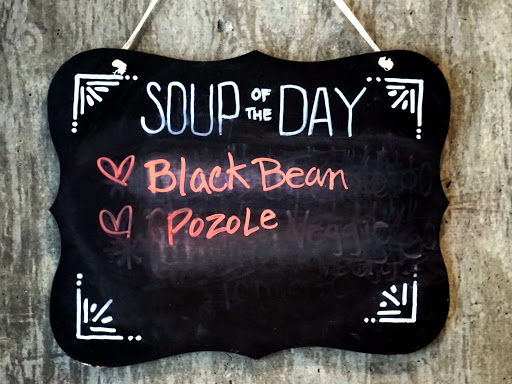 SOUP OF THE DAY
Black Bean
Pozole
Veggie